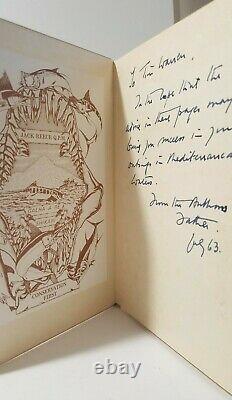 JACK REECE Q.F.S.M.
CONSERVATION
FIRST
To Tim
In the hope that the
advice in these pages may
bring you success in your
outings in Mediterranean
waters.
from the Authors
Father.
63.